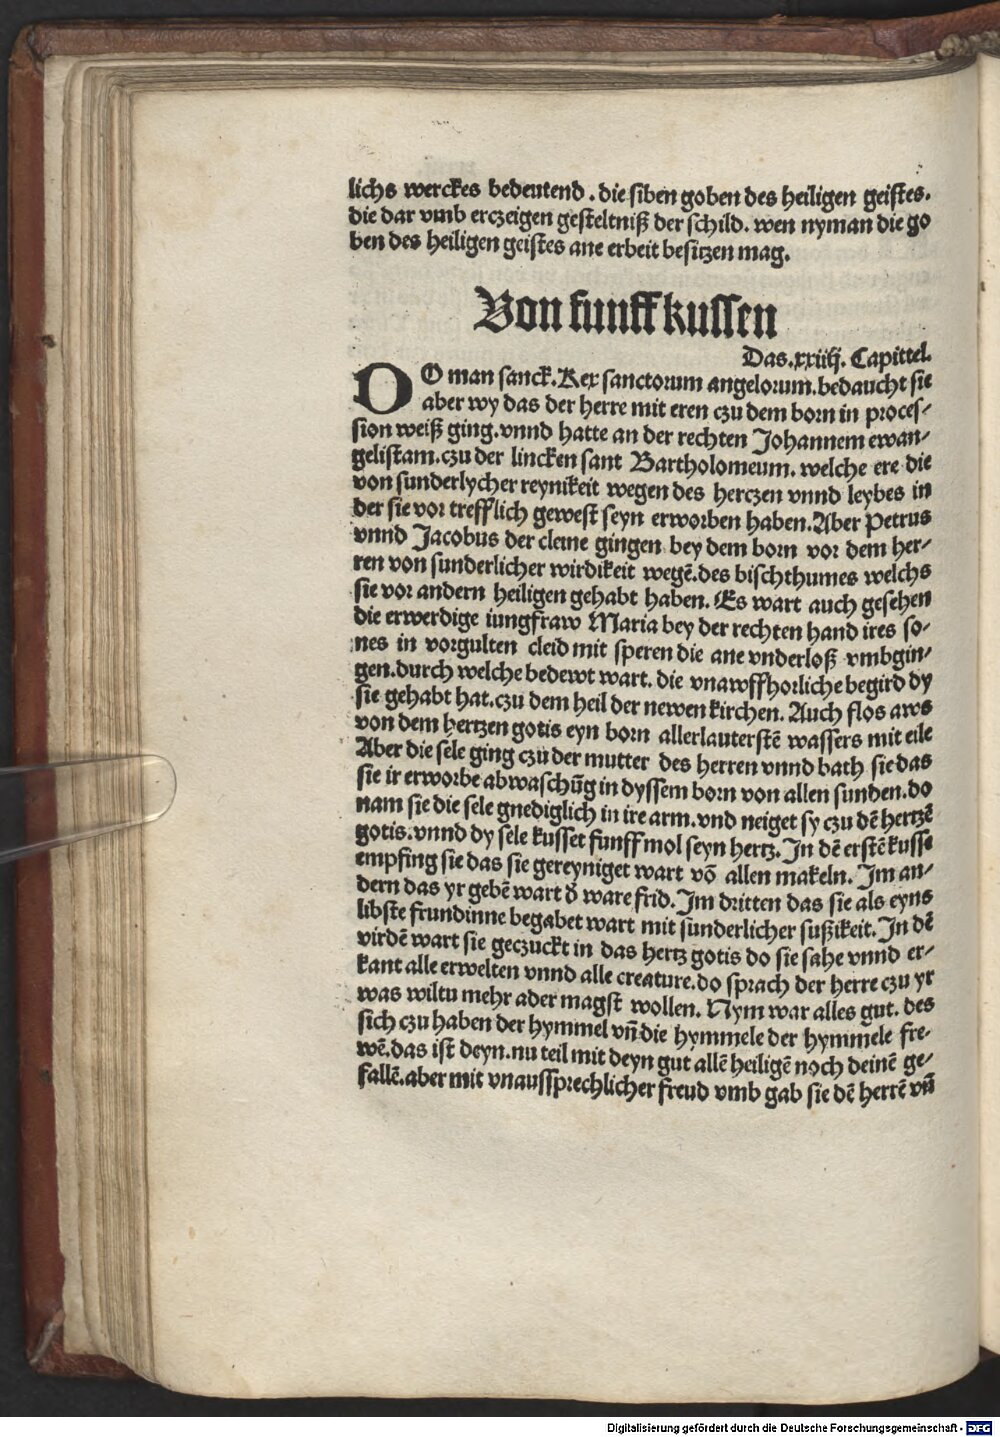 lichs werckes bedeutend . die siben goben des heiligen geistes.
die dar vmb erczeigen gesteltniß der schild. wen nyman die go
ben des heiligen geistes ane erbeit besitzen mag.
Von funff kussen
Das.xxiiij. Capittel.
DO man sanck.Rex sanctorum angelorum.bedaucht sie
aber wy das der herre mit eren czu dem born in proces-
sion weiß ging.vnnd hatte an der rechten Johannem ewan-
gelistam.czu der lincken sant Bartholomeum. welche ere die
von sunderlycher reynikeit wegen des herczen vnnd leybes in
der sie vor trefflich gewest seyn erworben haben.Aber Petrus
vnnd Jacobus der cleine gingen bey dem born vor dem her-
ren von sunderlicher wirdikeit wegē.des bischthumes welchs
sie vor andern heiligen gehabt haben. Es wart auch gesehen
die erwerdige iungfraw Maria bey der rechten hand ires so-
nes in vorgulten cleid mit speren die ane vnderloß vmbgin-
gen.durch welche bedewt wart. die vnawffhorliche begird dy
sie gehabt hat.czu dem heil der newen kirchen. Auch flos aws
von dem hertzen gotis eyn born allerlauterstē wassers mit eile
Aber die sele ging czu der mutter des herren vnnd bath sie das
sie ir erworbe abwaschūg in dyssem born von allen sunden.do
nam sie die sele gnediglich in ire arm.vnd neiget sy czu dē hertzē
gotis.vnnd dy sele kusset funff mol seyn hertz. In dē erstē kusse
empfing sie das sie gereyniget wart vō allen makeln. Im an-
dern das yr gebē wart d̕ ware frid. Im dritten das sie als eyns
libste frundinne begabet wart mit sunderlicher sußikeit. In dē
virdē wart sie geczuckt in das hertz gotis do sie sahe vnnd er-
kant alle erwelten vnnd alle creature.do sprach der herre czu yr
was wiltu mehr ader magst wollen. Nym war alles gut. des
sich czu haben der hymmel vn̄ die hymmele der hymmele fre-
wē.das ist deyn.nu teil mit deyn gut allē heiligē noch deinē ge-
fallē.aber mit vnaussprechlicher freud vmb gab sie dē herrē vn̄
Digitalisierung gefördert durch die Deutsche Forschungsgemeinschaft - DFG